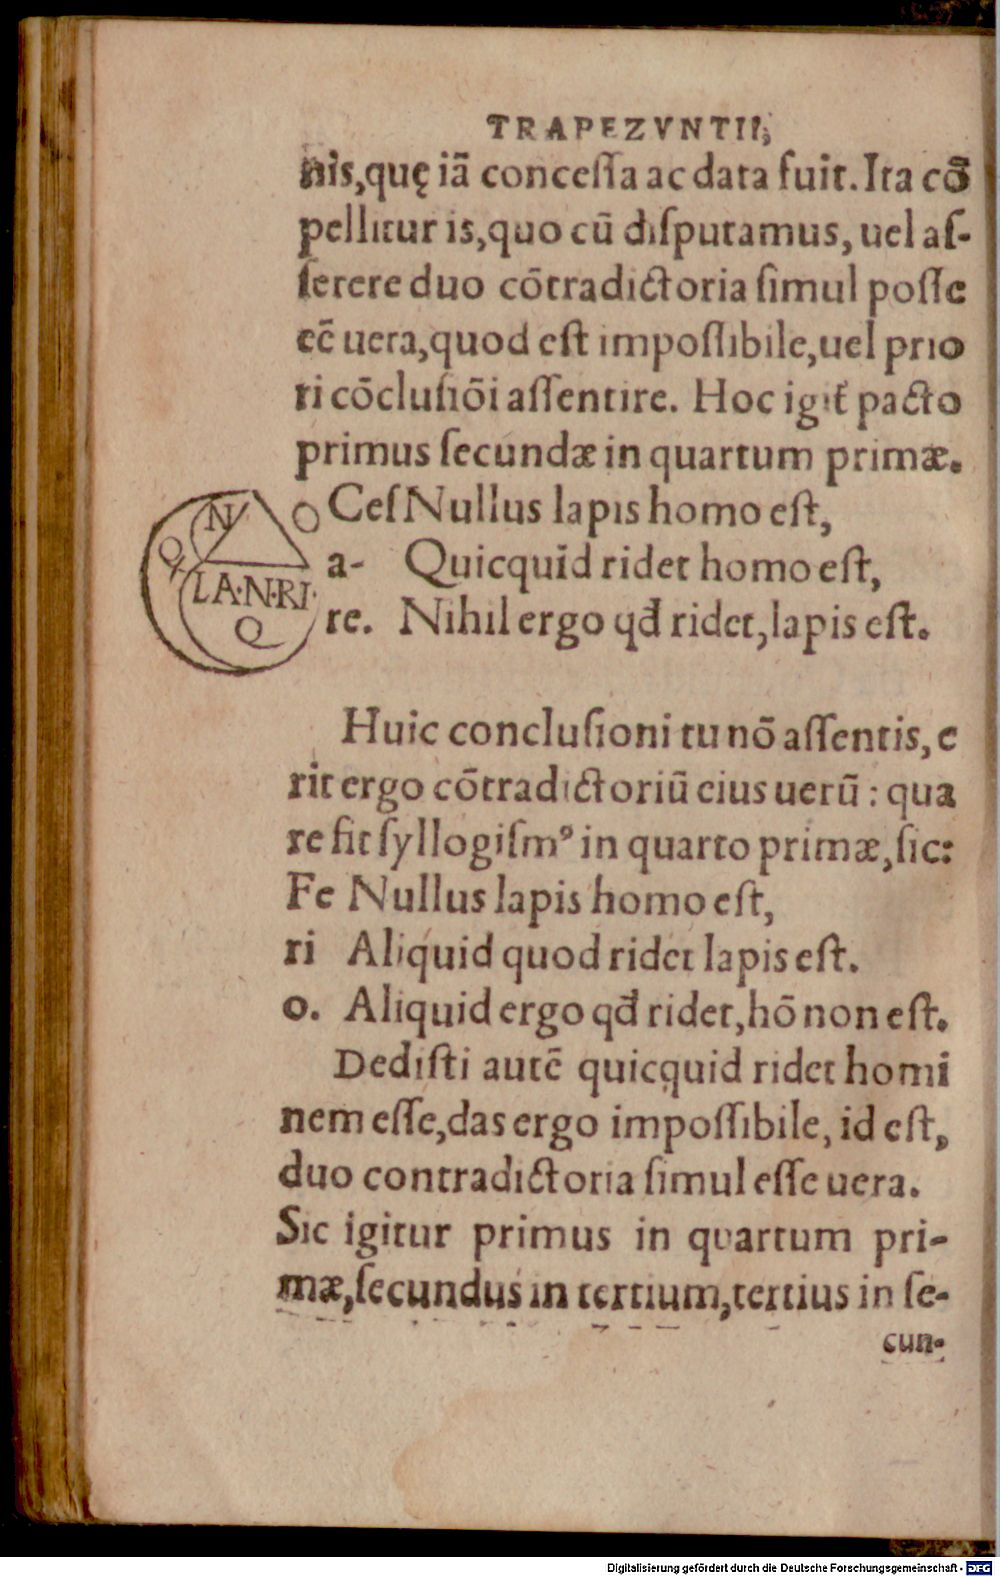 TRAPEZVNTII,
nis,quę iā concessa ac data fuit. Ita cō
pellitur is, quo cū disputamus, uel as-
serere duo cōtradictoria simul posse
eē uera, quod est impossibile, uel prio
ri cōclusiōi assentire. Hoc igit᷑ pacto
primus secundæ in quartum primæ.
Ces Nullus lapis homo est,
a- Quicquid ridet homo est,
re. Nihil ergo qđ ridet, lapis est.
N
O
Q
LA·N·RI·
Q
Huic conclusioni tu nō assentis, e
rit ergo cōtradictoriū eius uerū: qua
re fit syllogismꝰ in quarto primæ, sic:
Fe Nullus lapis homo est,
ri Aliquid quod ridet lapis est.
o. Aliquid ergo qđ ridet, hō non est.
Dedisti autē quicquid ridet homi
nem esse, das ergo impossibile, id est,
duo contradictoria simul esse uera.
Sic igitur primus in quartum pri-
mæ, secundus in tertium, tertius in se-
cun-
Digitalisierung gefördert durch die Deutsche Forschungsgemeinschaft - DFG